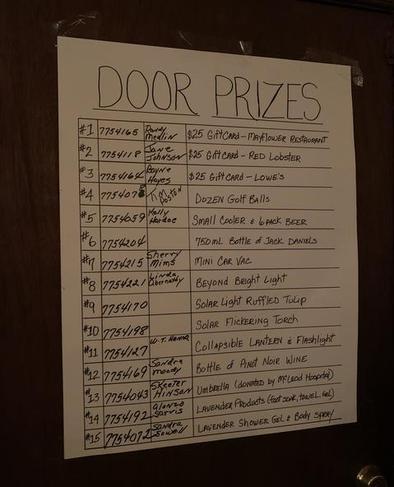 DOOR PRIZES
#1 7754165 Medlin $25 Gift Card - Mayflower Restaurant
#2 7754118 Jane Johnson $25 Gift Card - Red Lobster
#3 7754164 Hayes $25 Gift Card - Lowe's
#4 T. M. Dozen Golf Balls
#5 7754059 Small Cooler & 6 pack Beer
#6 7754204 750 mL Bottle of Jack Daniels
#7 7754215 Sherry Mims Mini Car Vac
#8 7754221 Linda Beyond Bright Light
#9 7754170 Solar Light Ruffled Tulip
#10 7754198 Solar Flickering Torch
#11 7754127 W.T. Collapsible Lantern & Flashlight
#12 7754169 Sandra Moody Bottle of Pinot Noir Wine
#13 7754043 Skeeter Hinson Umbrella (donated by McLeod Hospital)
#14 7754192 Alonzo Lavender Products (foot soak, towel, gel)
#15 7754072 Sandra Sowell Lavender Shower Gel & Body Spray